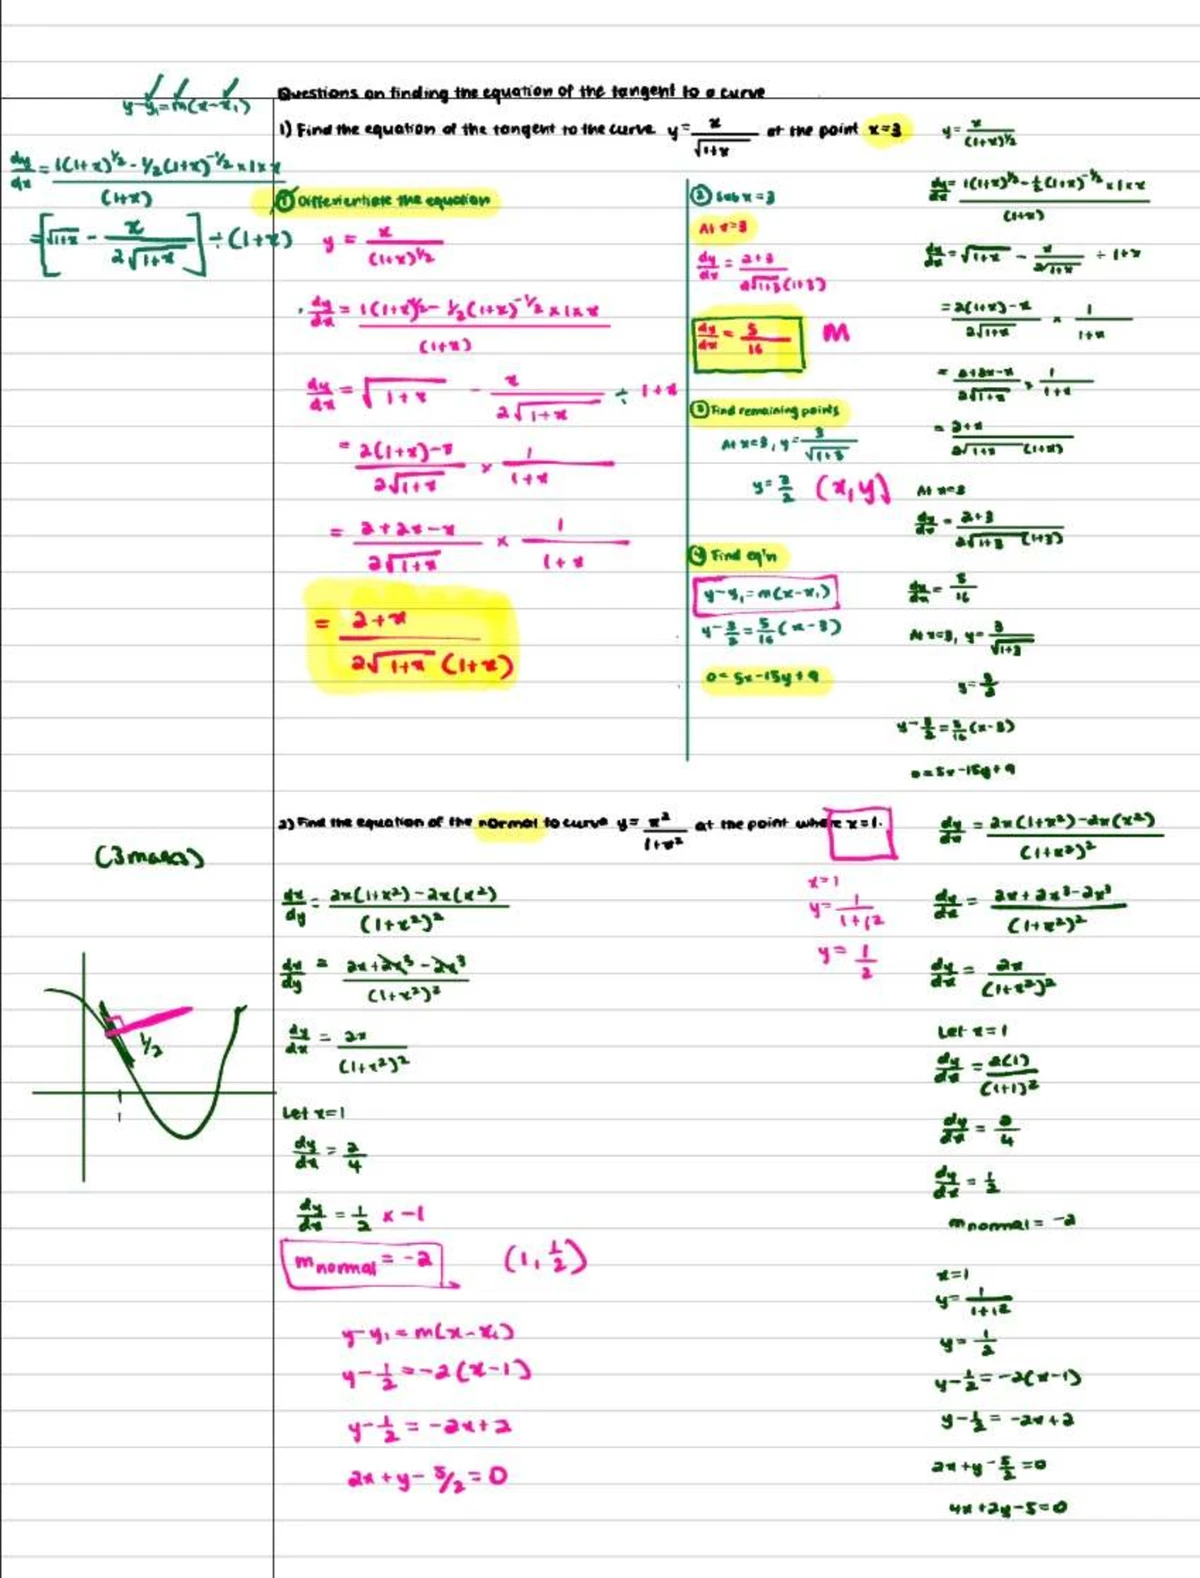 y-y₁=m(x-x₁)
Questions on finding the equation of the tangent to a curve
1) Find the equation of the tangent to the curve y = x/√(1+x) at the point x=3
dy/dx = 1(1+x)^½ - ½(1+x)^-½ × 1 × x / (1+x)
= [√(1+x) - x/(2√(1+x))] ÷ (1+x)
① Differentiate the equation
y = x/(1+x)^½
dy/dx = 1(1+x)^½ - ½(1+x)^-½ × 1 × x / (1+x)
dy/dx = √(1+x) - x/(2√(1+x)) ÷ 1+x
= 2(1+x)-x / 2√(1+x) × 1/(1+x)
= 2+2x-x / 2√(1+x) × 1/(1+x)
= 2+x / 2√(1+x) (1+x)
② Sub x=3
At x=3
dy/dx = 2+3 / 2√(1+3) (1+3)
dy/dx = 5/16 M
③ Find remaining points
At x=3, y = 3/√(1+3)
y = 3/2 (x,y)
④ Find eq'n
y-y₁=m(x-x₁)
y-3/2 = 5/16 (x-3)
0=5x-15y+9
y = x/(1+x)^½
dy/dx = 1(1+x)^½ - ½(1+x)^-½ × 1 × x / (1+x)
dy/dx = √(1+x) - x/(2√(1+x)) ÷ 1+x
= 2(1+x)-x / 2√(1+x) × 1/(1+x)
= 2+2x-x / 2√(1+x) × 1/(1+x)
= 2+x / 2√(1+x) (1+x)
At x=3
dy/dx = 2+3 / 2√(1+3) (1+3)
dy/dx = 5/16
At x=3, y = 3/√(1+3)
y = 3/2
y-3/2 = 5/16 (x-3)
0=5x-15y+9
2) Find the equation of the normal to curve y = x²/(1+x²) at the point where x=1.
(3 marks)
1/2
1
dx/dy = 2x(1+x²)-2x(x²) / (1+x²)²
dx/dy = 2x+2x³-2x³ / (1+x²)²
dy/dx = 2x / (1+x²)²
Let x=1
dy/dx = 2/4
dy/dx = 1/2 × -1
m normal = -2
(1, 1/2)
y-y₁=m(x-x₁)
y-1/2 = -2(x-1)
y-1/2 = -2x+2
2x+y-5/2=0
x=1
y = 1/(1+1²)
y = 1/2
dy/dx = 2x(1+x²)-2x(x²) / (1+x²)²
dy/dx = 2x+2x³-2x³ / (1+x²)²
dy/dx = 2x / (1+x²)²
Let x=1
dy/dx = 2(1) / (1+1)²
dy/dx = 2/4
dy/dx = 1/2
m normal = -2
x=1
y = 1/(1+1²)
y = 1/2
y-1/2 = -2(x-1)
y-1/2 = -2x+2
2x+y-5/2=0
4x+2y-5=0